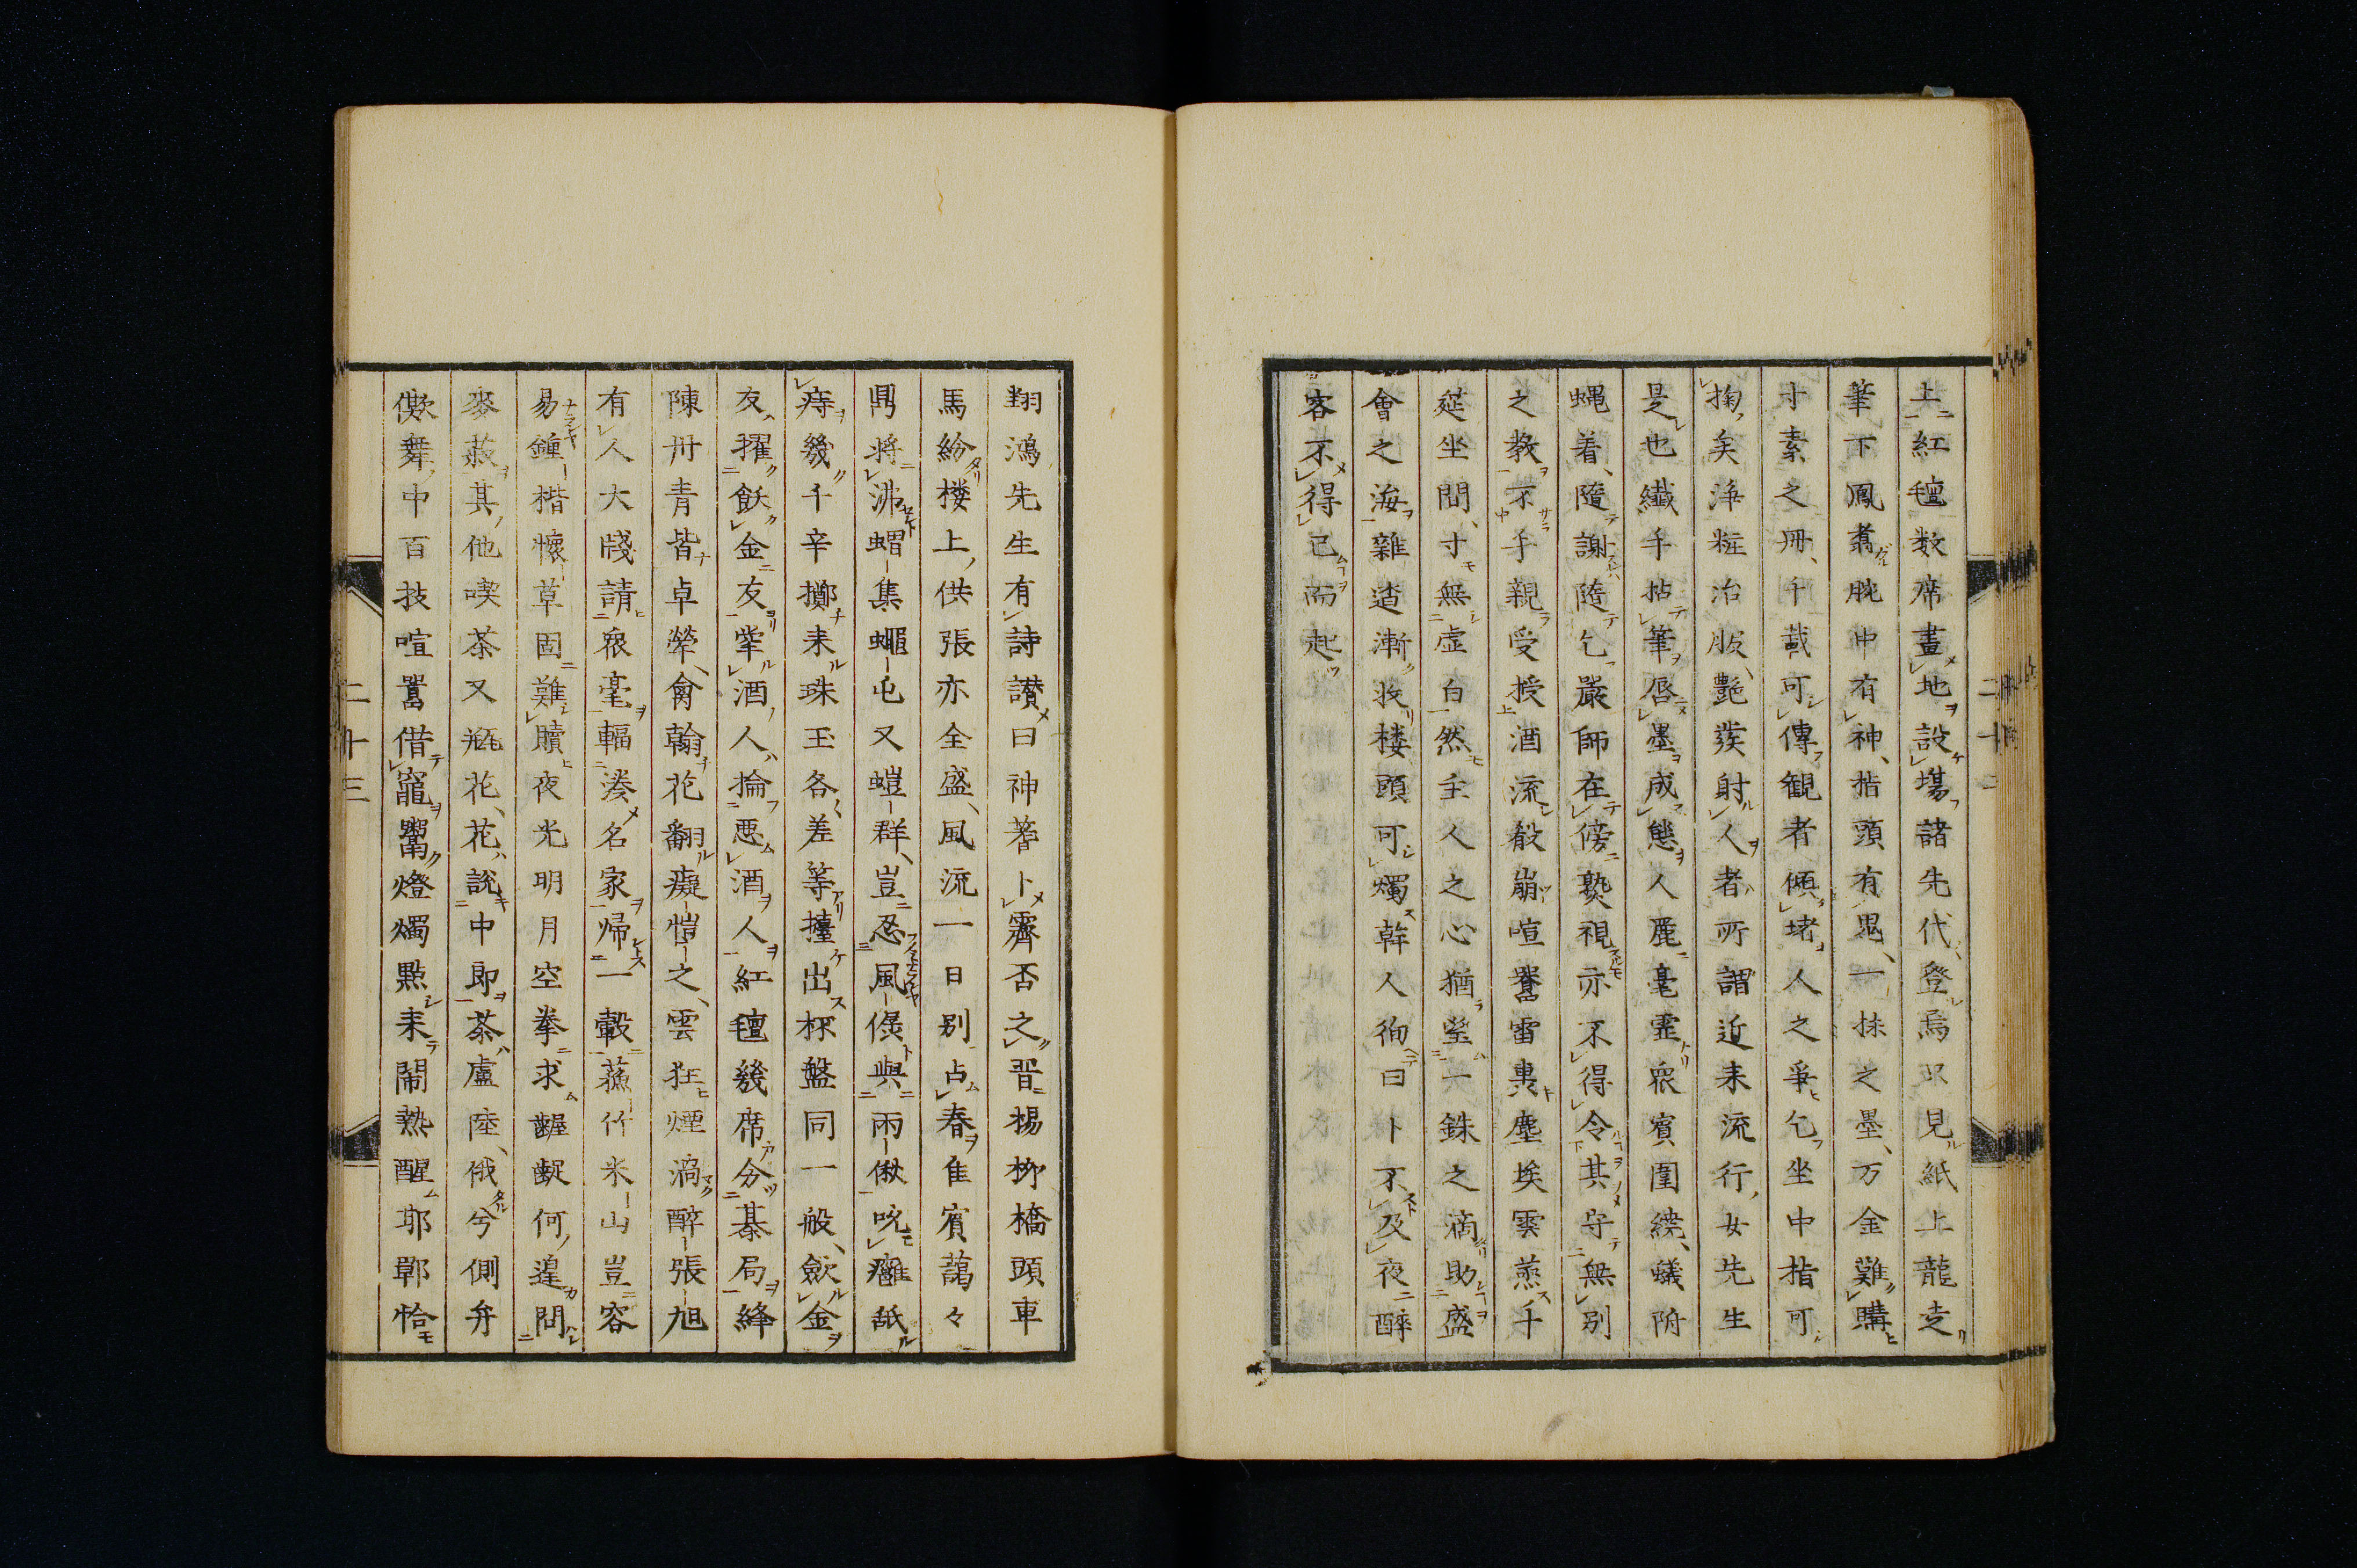 上紅氈数席畫地設場諸先代登焉只見紙上龍走
筆下鳳翥腕中有神指頭有鬼一抹之墨万金難購
寸素之冊千載可傳観者傾堵人之爭乞坐中指可
掬矣淨粧冶服艶發射人者所謂近来流行女先生
是也纎手拈筆唇墨成態人麗毫霊衆賓圍繞蟻附
蝿着隨謝隨乞嚴師在傍熟視亦不得令其守無別
之教不手親受授酒流殽崩喧豗雷轟塵埃雲蒸千
莚坐間寸無虚白然主人之心猶望一銖之滴助盛
會之海雜遝漸收楼頭可燭幹人徇曰卜不及夜醉
客不得已而起
翔鴻先生有詩讃曰神蓍卜霽否之晋楊栁橋頭車
馬紛楼上供張亦全盛風流一日別占春隹賓藹々
鼎将沸蝟集蠅屯又螘群豈忍風倐與雨僽吮癰舐
痔幾千辛擲来珠玉各差等擡出杯盤同一般歛金
友擢飫金友掌酒人掄悪酒人紅氈幾席分棊局絳
陳丹青皆卓犖禽翰花翻癡愷之雲狂煙渦醉張旭
有人大牋請衆毫輻湊名家帰一轂蘓竹米山豈容
易鍾楷懐草固難贖夜光明月空拳求齷齪何遑問
麥菽其他喫茶又瓶花花説中即茶盧陸俄兮側弁
僛舞中百技喧囂借竈鬻燈燭點来鬧熱醒邯鄲恰
二十三